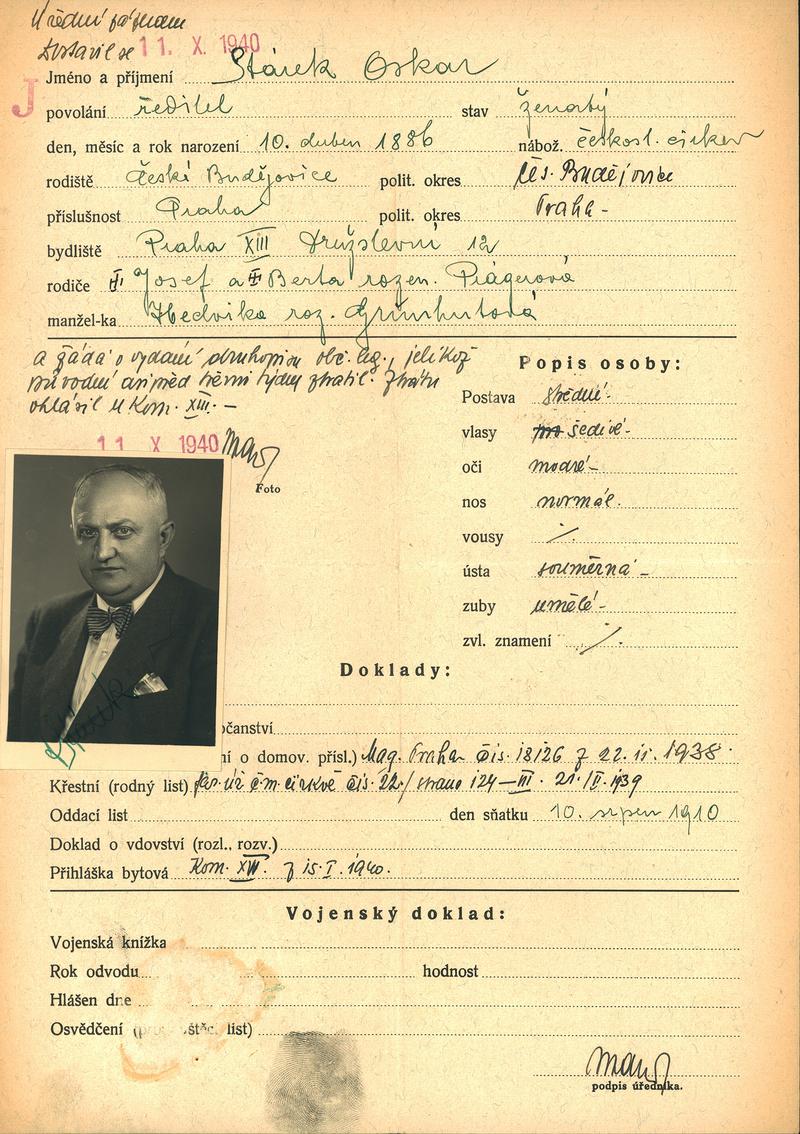 Úřední záznam
Dostavil se 11. X. 1940
J
Jméno a příjmení Stárek Oskar
povolání ředitel stav ženatý
den, měsíc a rok narození 10. duben 1886 nábož. českosl. církev
rodiště České Budějovice polit. okres Čes. Budějovice
příslušnost Praha polit. okres Praha -
bydliště Praha XIII Družstevní 12
rodiče Josef a Berta rozen. Prägerová
manžel-ka Hedvika roz. Grünhutová
a žádá o vydání druhopisu obč. leg., jelikož
původní asi před třemi týdny ztratil. Ztrátu
ohlásil u Kom. XIII. -
11 X 1940
Foto
Popis osoby:
Postava střední -
vlasy šedivé -
oči modré -
nos normál.
vousy /.
ústa souměrná -
zuby umělé -
zvl. znamení /.
Doklady:
čanství
í o domov. přísl.) Mag. Praha čis. 18126 z 22. 11. 1938.
Křestní (rodný list) čís. 22./ strana 124 - III. 21./II. 1939
Oddací list den sňatku 10. srpen 1910
Doklad o vdovství (rozl., rozv.)
Přihláška bytová Kom. XIII. z 15. I. 1940.
Vojenský doklad:
Vojenská knížka
Rok odvodu hodnost
Hlášen dne
Osvědčení list)
podpis úředníka.